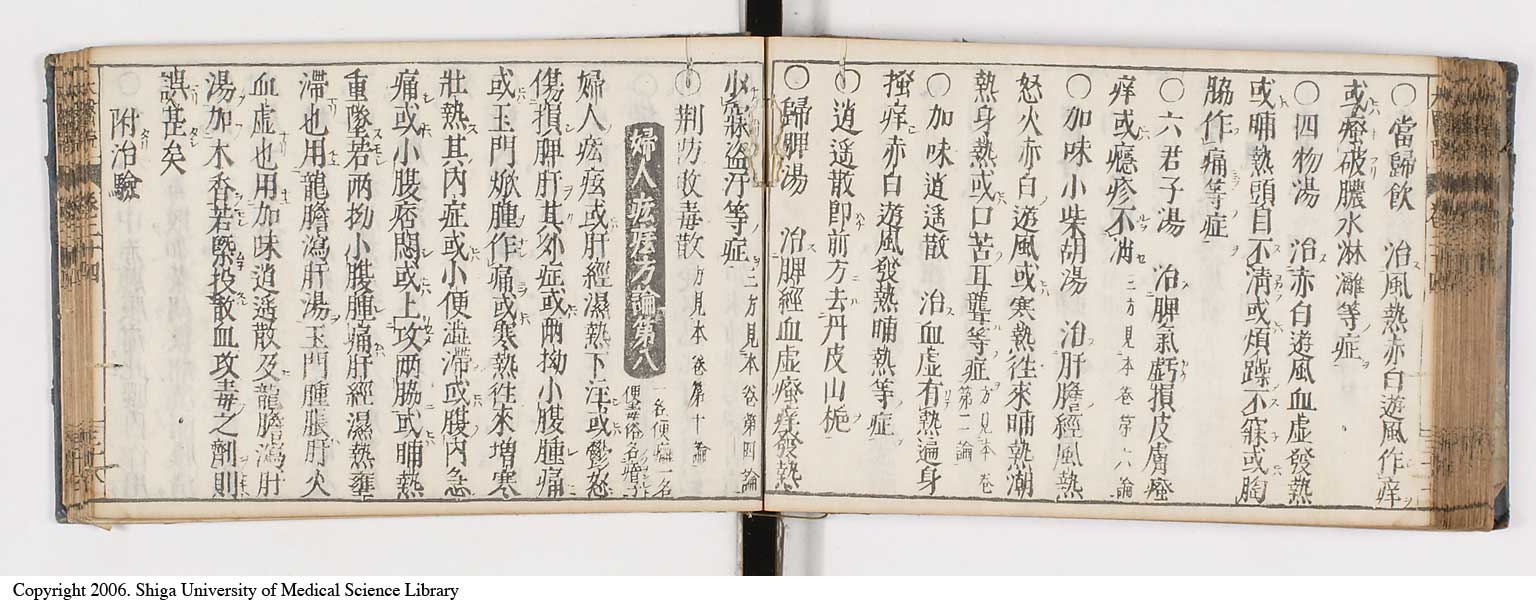 ○當歸飲　治風熱赤白遊風作痒
或瘡破膿水淋灕等症
○四物湯　治赤白遊風血虛發熱
或晡熱頭目不淸或煩躁不寐或胸
脇作痛等症
○六君子湯　治脾氣虧損皮膚瘙
痒或癮疹不消 三方見本卷第六論
○加味小柴胡湯　治肝膽經風熱
怒火赤白遊風或寒熱徃來晡熱潮
熱身熱或口苦耳聾等症 方見本卷第二論
○加味逍遥散　治血虛有熱遍身
搔痒赤白遊風發熱晡熱等症
○逍遥散即前方去丹皮山梔
○歸脾湯　治脾經血虛瘙痒發熱
少寐盜汗等症 二方見本卷第四論
○荆防敗毒散 方見本卷第十論
婦人㽱㾏方論第八 一名便癰一名便毒俗名㾪子
婦人㽱㾏或肝經濕熱下注或鬱怒
傷損脾肝其外症或兩拗小腹腫痛
或玉門焮腫作痛或寒熱徃來增寒
壯熱其內症或小便澁滯或腹內急
痛或小腹痞悶或上攻兩脇或晡熱
重墜若兩拗小腹腫痛肝經濕熱壅
滯也用龍膽瀉肝湯玉門腫脹肝火
血虛也用加味逍遥散及龍膽瀉肝
湯加木香若槩投散血攻毒之劑則
誤甚矣
附治驗
Copyright 2006. Shiga University of Medical Science Library